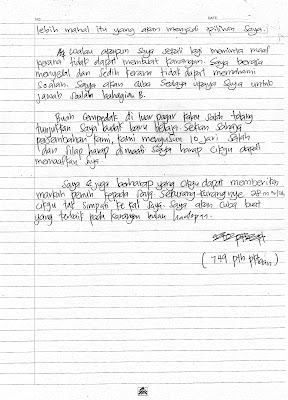 NO.
DATE
lebih mahal itu yang akan menjadi pilihan saya.
Walau apapun saya sekali lagi meminta maaf
kerana tidak dapat membuat karangan. Saya berasa
menyesal dan sedih kerana tidak dapat memahami
soalan. Saya akan cuba sedaya upaya saya untuk
jawab soalan bahagian B.
Buah cempedak di luar pagar
tunjukkan saya budak baru belajar. Sekian sahaja
persembahan kami, kami menyusun 10 jari salah
dan silap harap dimaafi saya harap cikgu dapat
memaafkan nya.
Saya juga berharap yang cikgu dapat memberikan
markah penuh kepada saya sekurang-kurangnya
cikgu tak simpati ke kat saya. Saya akan cuba buat
yang terbaik pada karangan bulan hadapan.
(749 pth